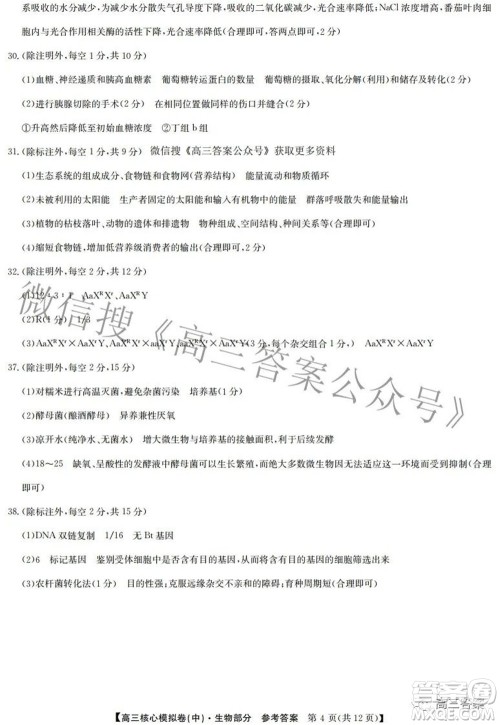 系吸收的水分减少,为减少水分散失气孔导度下降,吸收的二氧化碳减少,光合速率降低;NaCl浓度增高,番茄叶肉细
胞内与光合作用相关酶的活性下降,光合速率降低(合理即可,答两点即可,2分)
30.(除注明外,每空1分,共10分)
(1)血糖、神经递质和胰高血糖素 葡萄糖转运蛋白的数量 葡萄糖的摄取、氧化分解(利用)和储存(2分)
(2)进行胰腺切除的手术(合理即可,2分)
①升高然后降低至血糖正常(2分) ②丁组 b组
31.(除标注外,每空1分,共9分) 微信搜《高三答案公众号》获取更多资料
(1)生态系统的组成成分、食物链和食物网(营养结构)
(2)未被利用的太阳能 生产者固定的太阳能和输入有机物中的能量 群落呼吸散失和能量输出
(3)植物的枯枝落叶、动物的遗体和排遗物 物种组成、空间结构、种间关系(2分)
(4)缩短食物链,增加低营养级消费者的量(合理即可,2分)
32.(除注明外,每空2分,共12分)
(1)12:3:1 AaXᴿXʳ、AaXᴿY
(2)R(1分) 1/3
(3)AaXᴿXʳ×AaXʳY、AaXᴿXʳ×aaXʳY(3分,每个杂交组合1分) AaXᴿXʳ、AaXᴿY
37.(除注明外,每空2分,15分)
(1)对糯米进行高温灭菌,避免杂菌污染 培养基(1分)
(2)酵母菌(酿酒酵母) 异养兼性厌氧
(3)凉开水(纯净水、无菌水) 增大微生物与培养基的接触面积,利于发酵产热
(4)18~25 缺氧、呈酸性的发酵液中酵母菌可以生长繁殖,而大多数微生物因无法适应这一环境而受到抑制(合理
即可)
38.(除注明外,每空2分,共15分)
(1)DNA双链复制 1/16 无Bt基因
(2)6 标记基因 鉴别受体细胞中是否含有目的基因,从而将含有目的基因的细胞筛选出来(合理即可)
(3)农杆菌转化法(1分) 目的性强;克服远缘杂交不亲和的障碍;育种周期短(合理即可)
微信搜《高三答案公众号》
【高三核心模拟卷(中)·生物部分 参考答案 第4页(共12页)】
高三答案